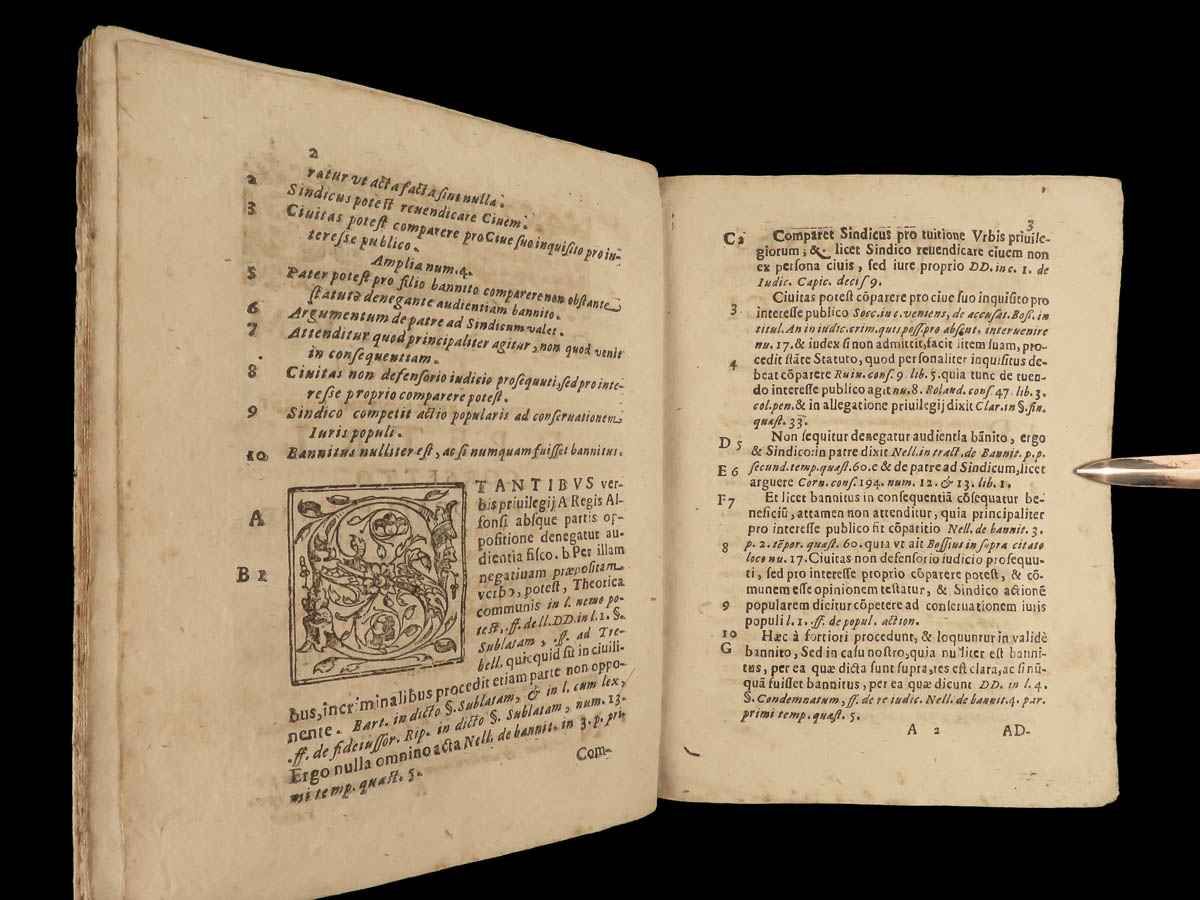 2
ratur vt acta facta sint nulla.
2 Sindicus potest reuendicare Ciuem.
3 Ciuitas potest comparere pro Ciue suo inquisito pro in-
teresse publico.
Amplia num. 4.
5 Pater potest pro filio bannito comparere non obstante
statuto denegante audientiam bannito.
6 Argumentum de patre ad Sindicum valet.
7 Attenditur quod principaliter agitur, non quod venit
in consequentiam.
8 Ciuitas non defensorio iudicio prosequuti, sed pro inte-
resse proprio comparere potest.
9 Sindico competit actio popularis ad conseruationem
Iuris populi.
10 Bannitus nulliter est, ac si numquam fuisset bannitus.
STANTIBVS ver-
A bis priuilegij A Regis Al-
fonsi absque partis op-
positione denegatur au-
dientia fisco. b Per illam
B 1 negatiuam præpositam
verbo, potest, Theorica
communis in l. nemo po-
test, ff. de ll. DD. in l. 1. §.
Sublatam, ff. ad Tre-
bell. quicquid sit in ciuili-
bus, in criminalibus procedit etiam parte non oppo-
nente. Bart. in dicto §. Sublatam, & in l. cum lex,
ff. de fideiussor. Rip. in dicto §. Sublatam, num. 13.
Ergo nulla omnino acta Nell. de bannit. in 3. p. pri-
mi temp. quæst. 5.
Com-
3
C 2 Comparet Sindicus pro tuitione Vrbis priuile-
giorum; & licet Sindico reuendicare ciuem non
ex persona ciuis, sed iure proprio DD. in c. 1. de
Iudic. Capic. decis 9.
Ciuitas potest cōparere pro ciue suo inquisito pro
3 interesse publico Socc. in c. veniens, de accusat. Boss. in
titul. An in iudic. crim. quis poss. pro absent. interuenire
nu. 17. & iudex si non admittit, facit litem suam, pro-
4 cedit stāte Statuto, quod personaliter inquisitus de-
beat cōparere Ruin. cons. 9 lib. 5. quia tunc de tuen-
do interesse publico agit nu. 8. Roland. cons. 47. lib. 3.
col. pen. & in allegatione priuilegij dixit Clar. in §. fin.
quæst. 33.
D 5 Non sequitur denegatur audientia bānito, ergo
& Sindico: in patre dixit Nell. in tract. de Bannit. p. p.
E 6 secund. temp. quæst. 60. e & de patre ad Sindicum, licet
arguere Corn. cons. 194. num. 12. & 13. lib. 1.
F 7 Et licet bannitus in consequentiā cōsequatur be-
neficiū, attamen non attenditur, quia principaliter
pro interesse publico fit cōpatitio Nell. de bannit. 3.
8 p. 2. tēpor. quæst. 60. quia vt ait Bossius in supra citato
loco nu. 17. Ciuitas non defensorio iudicio prosequu-
ti, sed pro interesse proprio cōparere potest, & cō-
munem esse opinionem testatur, & Sindico actionē
9 popularem dicitur cōpetere ad conseruationem iuris
populi l. 1. ff. de popul. action.
10 Hæc à fortiori procedunt, & loquuntur in validè
G bannito, Sed in casu nostro, quia nulliter est banni-
tus, per ea quæ dicta sunt supra, res est clara, ac si nū-
quā fuisset bannitus, per ea quæ dicunt DD. in l. 4.
§. Condemnatum, ff. de re iudic. Nell. de bannit. 4. par.
primi temp. quæst. 5.
A 2 AD-